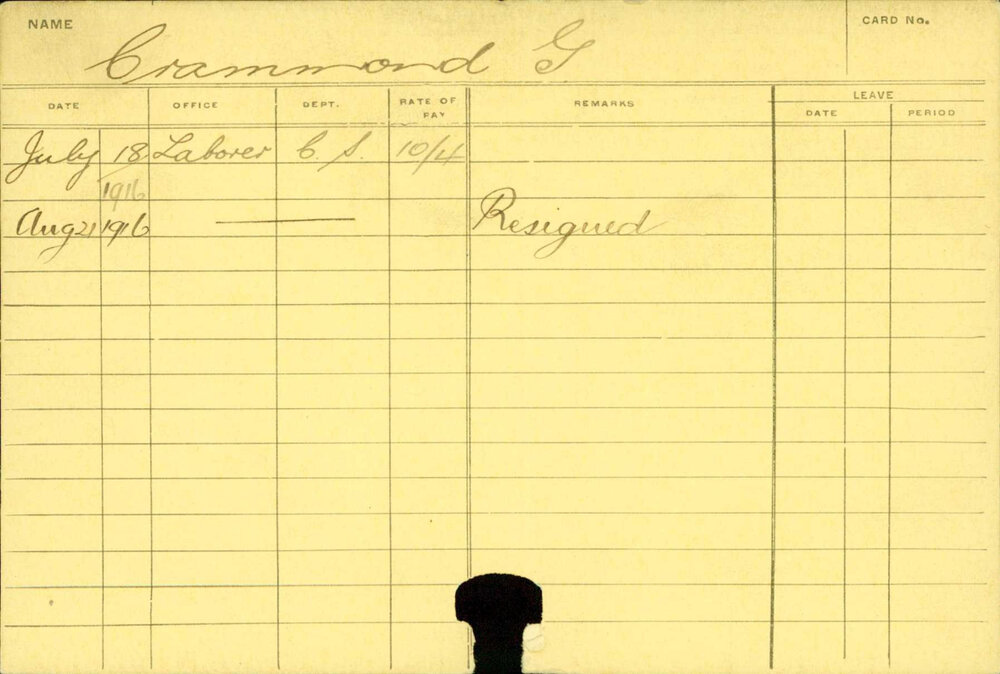 NAME
CARD No.
Crammond G
DATE OFFICE DEPT. RATE OF PAY REMARKS LEAVE
DATE PERIOD
July 18 Laborer C. S. 10/4
1916
Aug 21 1916 Resigned